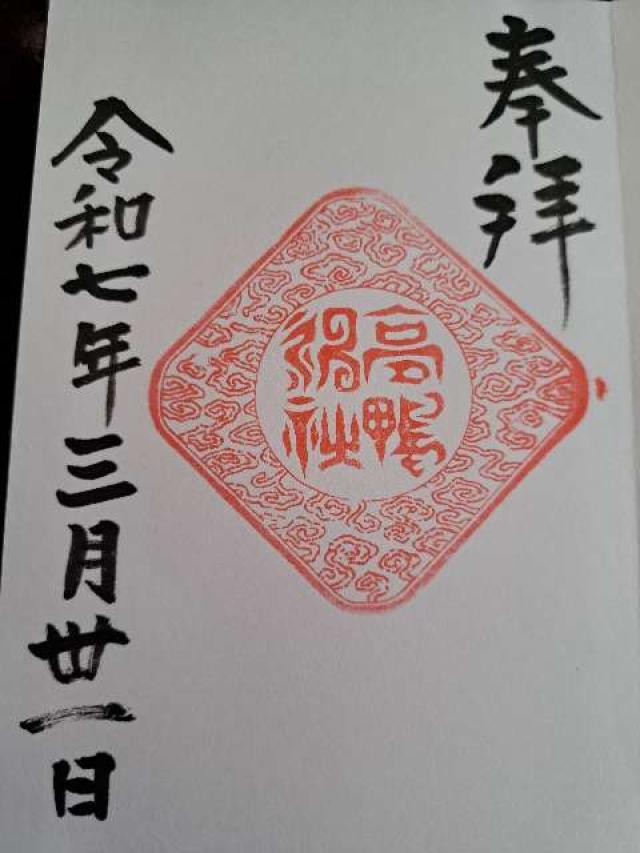 奉拝
高鴨
神社
令和七年三月丗一日